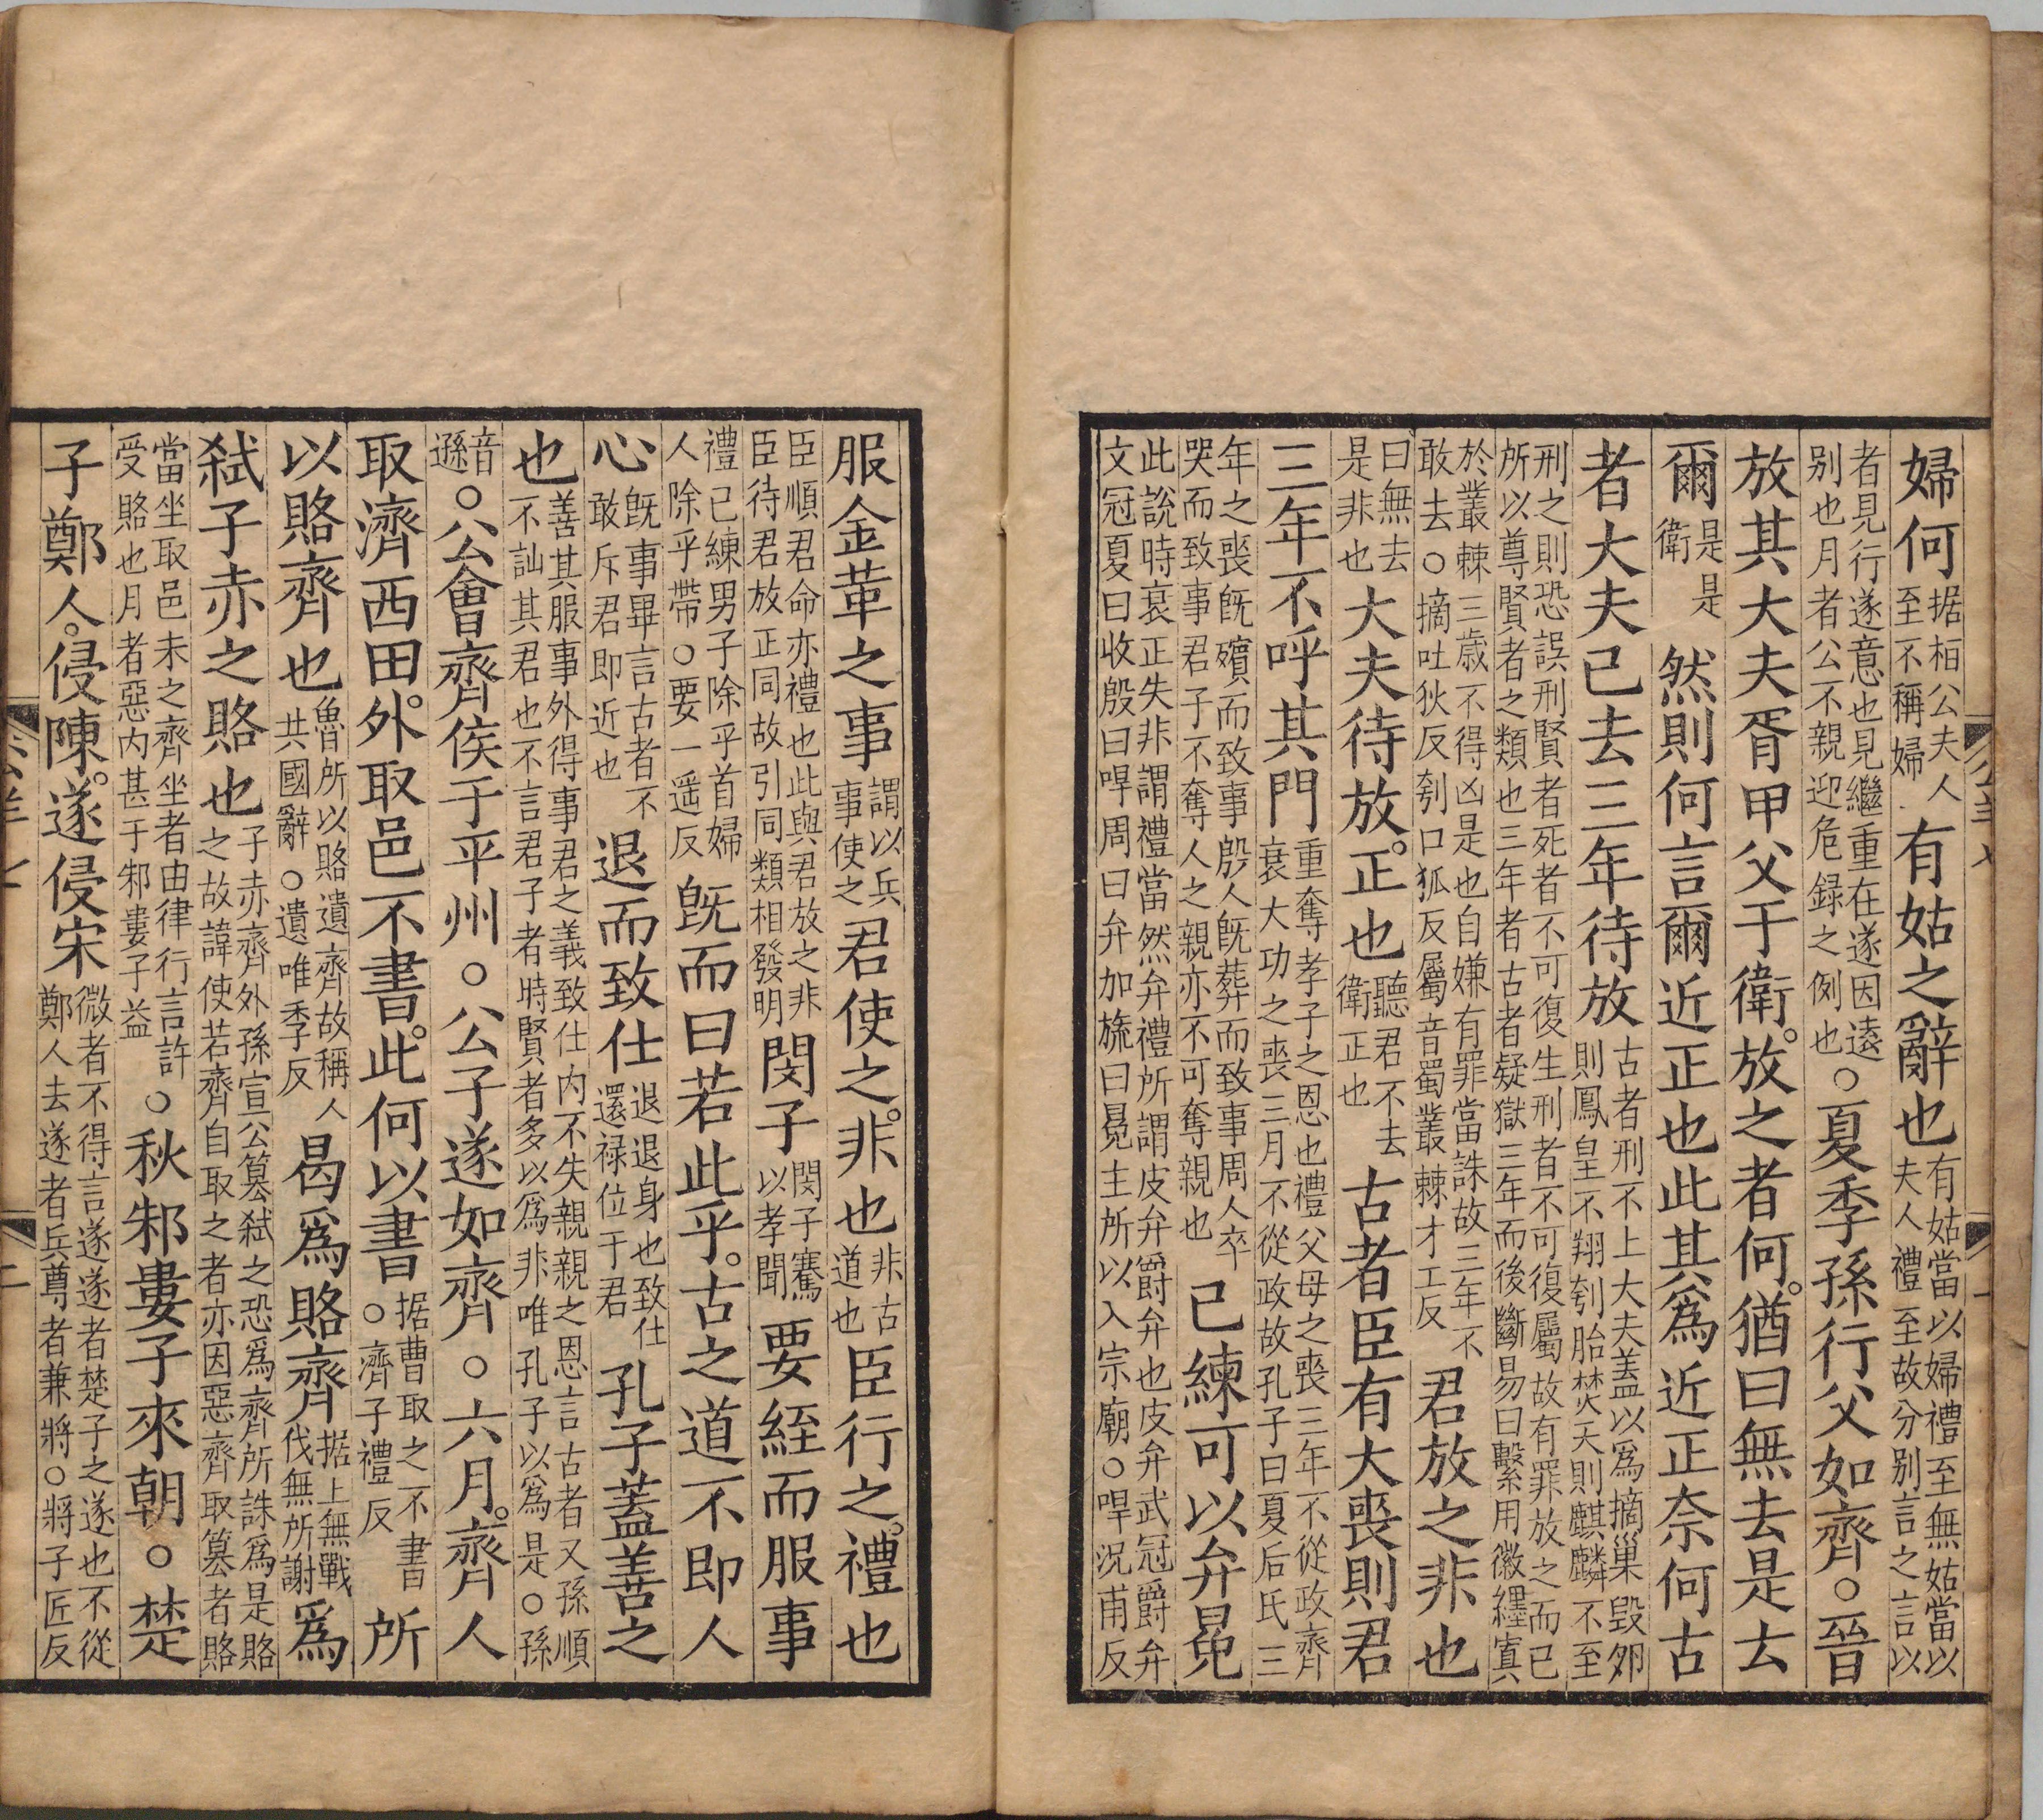 婦何据相公夫人至不稱婦有姑之辭也有姑當以婦禮至無姑當以夫人禮至故分别言之言以
者見行遂意也見繼重在遂因遠别也月者公不親迎危録之例也○夏季孫行父如齊○晉
放其大夫胥甲父于衛。放之者何。猶曰無去是去
爾是是衛然則何言爾近正也此其爲近正奈何古
者大夫已去三年待放古者刑不上大夫蓋以爲摘巢毀夘則鳳皇不翔刳胎焚夭則麒麟不至
刑之則恐誤刑賢者死者不可復生刑者不可復屬故有罪放之而已所以尊賢者之類也三年者古者疑獄三年而後斷易曰繫用徽纆寘
於叢棘三歲不得凶是也自嫌有罪當誅故三年不敢去○摘吐狄反刳口狐反屬音蜀叢棘才工反君放之非也
曰無去是非也大夫待放。正也聽君不去衛正也古者臣有大喪則君
三年不呼其門重奪孝子之恩也禮父母之喪三年不從政齊衰大功之喪三月不從政故孔子曰夏后氏三
年之喪旣殯而致事殷人旣葬而致事周人卒哭而致事君子不奪人之親亦不可奪親也已練可以弁冕
此說時衰正失非謂禮當然弁禮所謂皮弁爵弁也皮弁武冠爵弁文冠夏曰收殷曰哻周曰弁加旒曰冕主所以入宗廟○哻況甫反
服金革之事謂以兵事使之君使之。非也非古道也臣行之。禮也
臣順君命亦禮也此與君放之非臣待君放正同故引同類相發明閔子閔子騫以孝聞要絰而服事
禮已練男子除乎首婦人除乎帶○要一遥反旣而曰若此乎。古之道不即人
心旣事畢言古者不敢斥君即近也退而致仕退退身也致仕還禄位于君孔子蓋善之
也善其服事外得事君之義致仕内不失親親之恩言古者又孫順不訕其君也不言君子者時賢者多以爲非唯孔子以爲是○孫
音遜○公會齊侯于平州○公子遂如齊○六月。齊人
取濟西田。外取邑不書。此何以書据曹取之不書○濟子禮反所
以賂齊也魯所以賂遺齊故稱人共國辭○遺唯季反曷爲賂齊据上無戰伐無所謝爲
弑子赤之賂也子赤齊外孫宣公篡弑之恐爲齊所誅爲是賂之故諱使若齊自取之者亦因惡齊取篡者賂
當坐取邑未之齊坐者由律行言許受賂也月者惡内甚于邾婁子益○秋邾婁子來朝○楚
子鄭人。侵陳。遂侵宋微者不得言遂遂者楚子之遂也不從鄭人去遂者兵尊者兼將○將子匠反